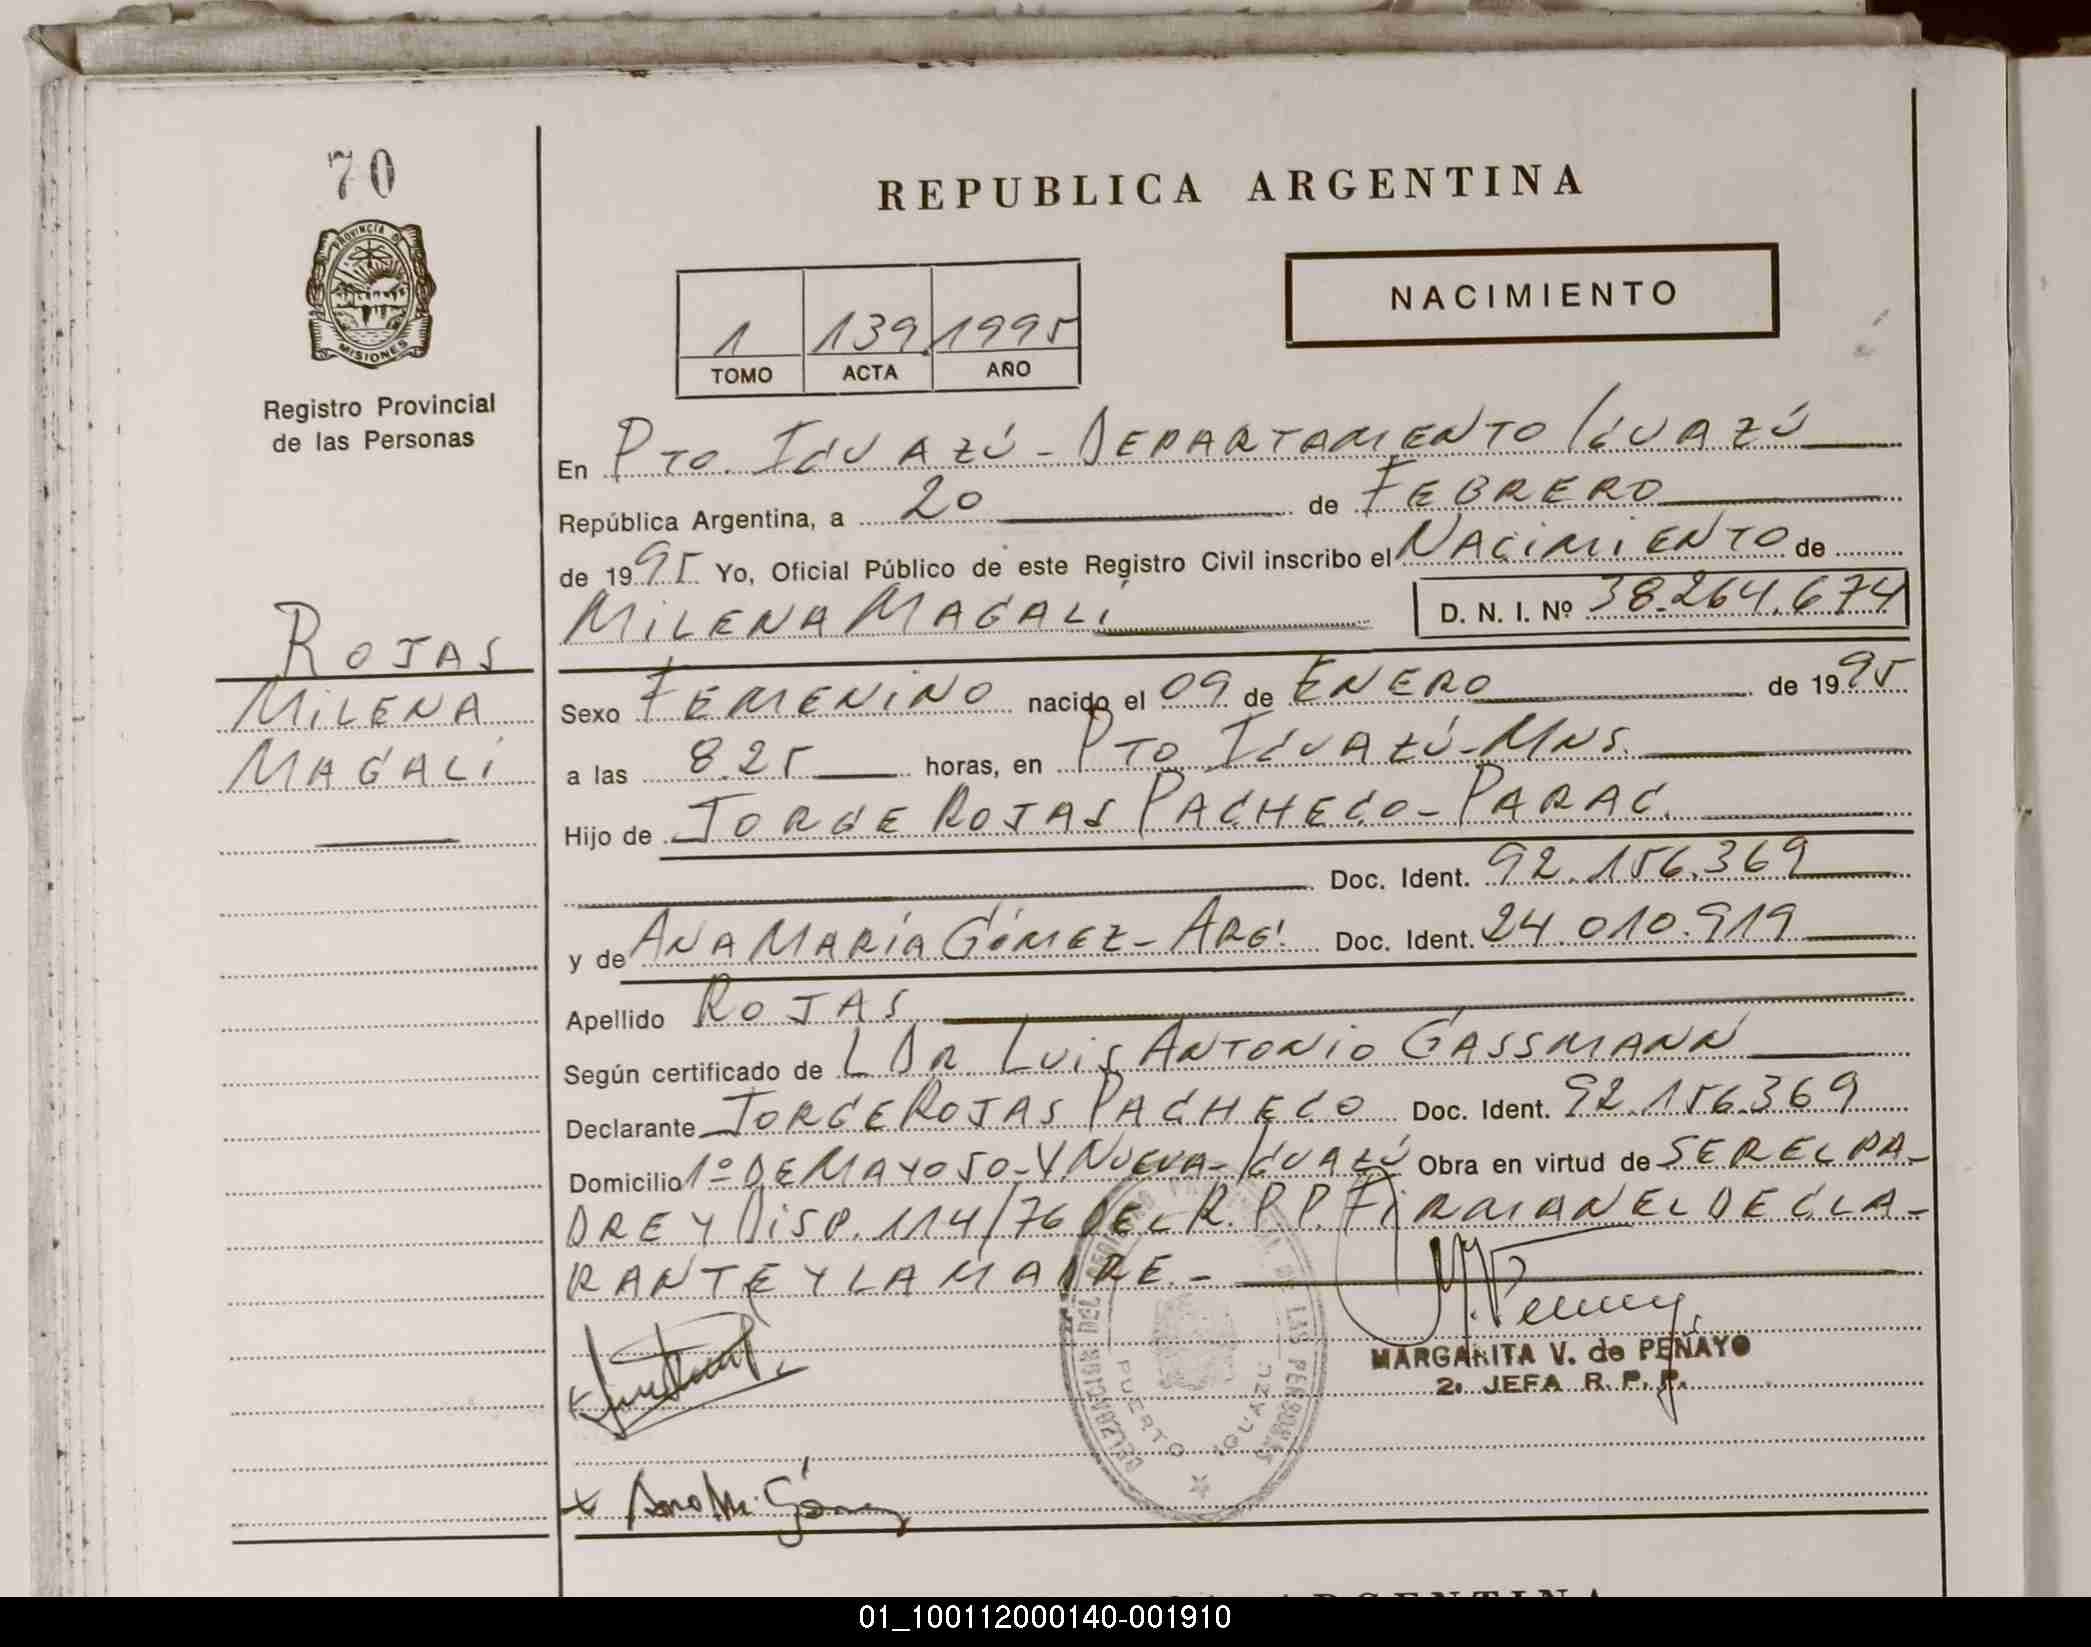 70
PROVINCIA DE
MISIONES
Registro Provincial
de las Personas
REPUBLICA ARGENTINA
NACIMIENTO
1 139 1995
TOMO ACTA AÑO
En Pto. Iguazú - Departamento Iguazú
República Argentina, a 20 de Febrero
de 1995 Yo, Oficial Público de este Registro Civil inscribo el Nacimiento de
Milena Magalí D. N. I. Nº 38.264.674
Rojas
Milena
Magalí
Sexo Femenino nacido el 09 de Enero de 1995
a las 8.25 horas, en Pto Iguazú - Mns.
Hijo de Jorge Rojas Pacheco - Parag.
Doc. Ident. 92.156.369
y de Ana María Gómez - Arg. Doc. Ident. 24.010.919
Apellido Rojas
Según certificado de L Dr. Luis Antonio Gassmann
Declarante Jorge Rojas Pacheco Doc. Ident. 92.156.369
Domicilio 1º de Mayo 50 - V. Nueva - Iguazú Obra en virtud de ser el pa-
dre y Disp. 114/76 del R.P.P. Firman el decla-
rante y la madre. -
DELEGACION DEL REGISTRO PROVINCIAL DE LAS PERSONAS
PUERTO IGUAZU
MARGARITA V. de PEÑAYO
2ª JEFA R. P. P.
x Ana M. Gómez
ARGENTINA
01_100112000140-001910